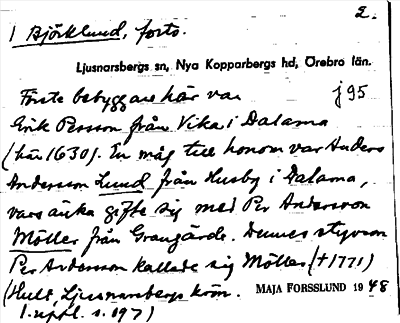 2.
1 Björklund, forts.
Ljusnarsbergs sn, Nya Kopparbergs hd, Örebro län.
Förste bebyggare här var j 95
Erik Persson från Vika i Dalarna
(här 1630). En måg till honom var Anders
Andersson Lund från Husby i Dalarna,
vars änka gifte sig med Per Andersson
Möller från Grangärde. Dennes styvson
Per Andersson kallade sig Möller (†1771)
(Hult, Ljusnarsbergs krön.
1. uppl. s. 197)
MAJA FORSSLUND 1948